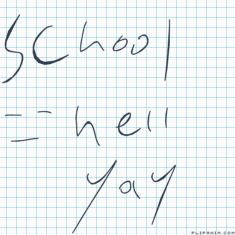 School
= hell
yay
FLIPANIM.COM